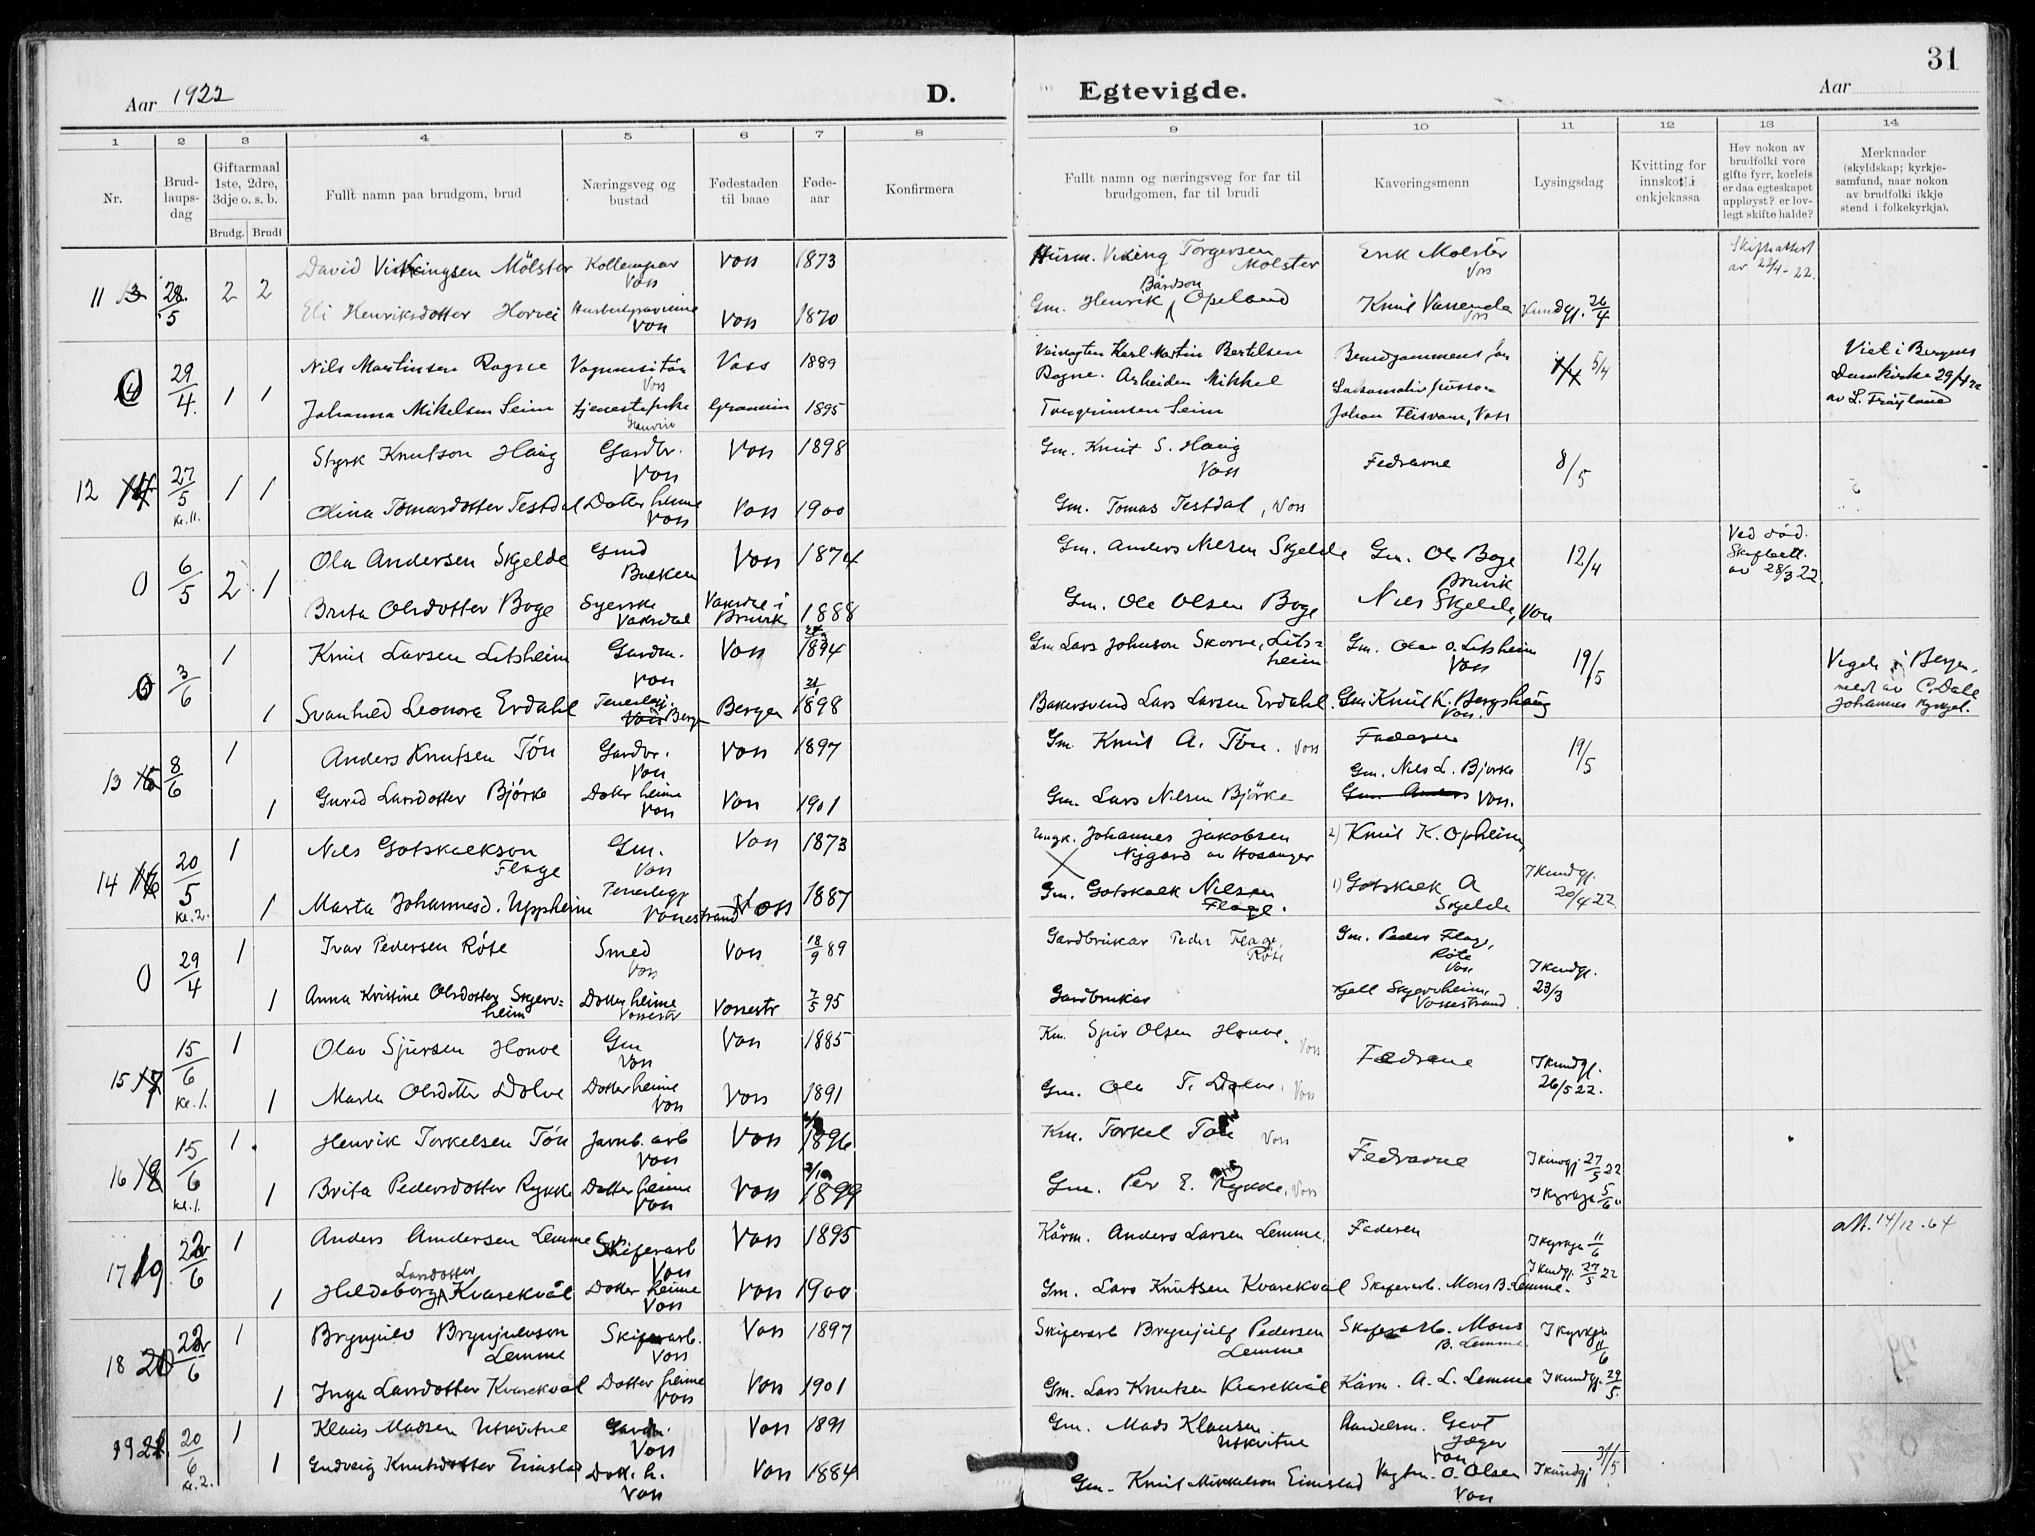 31
Aar 1922
D.
Egtevigde.
Aar
1 2 3 4 5 6 7 8 9 10 11 12 13 14
Nr.
Brud-
laups-
dag
Giftarmaal
1ste, 2dre,
3dje o. s. b.
Brudg. Brudi
Fullt namn paa brudgom, brud
Næringsveg og
bustad
Fødestaden
til baae
Føde-
aar
Konfirmera
Fullt namn og næringsveg for far til
brudgomen, far til brudi
Kaveringsmenn
Lysingsdag
Kvitting for
innskot i
enkjekassa
Hev nokon av
brudfolki vore
gifte fyrr, korleis
er daa egteskapet
uppløyst? er lov-
legt skifte halde?
Merknader
(skyldskap; kyrkje-
samfund, naar nokon
av brudfolki ikkje
stend i folkekyrkja).
11 28/5 2 2 David Vikingsen Mölster Voss Voss 1873 Husm. Viking Torgersen Mölster Erik Mölster Voss Skifteattest av 22/4-22.
Eli Henriksdotter Horvei Voss Voss 1870 Gm. Henrik Bårdson Opeland Knut Vassenda Voss Kundgj. 26/4
29/4. 1 1 Nils Martinsen Rogne Voss Voss 1889 Karl Martin Bertelsen 5/4 Viet i Bergens
Johanna Mikelsen Seim 1895 Rogne. Arbeider Mikkel Domkirke 29/4 22
Tongrimsen Seim Johan Voss av L. Frøyland
12 14 27/5 Kl. 11. 1 1 Styrk Knutson Haug Gardbr. Voss Voss 1898 Gm. Knut S. Haug Voss Fedrarne 8/5
Olina Tomasdotter Testdal Dotter heime Voss Voss 1900 Gm. Tomas Testdal, Voss
0 6/5 2 1 Ola Andersen Skjelde Gmd Voss 1874 Gm. Anders Nilsen Skjelde Gm. Ole Boge Bruvik 12/4 Ved död. Skifteatt. av 28/3 22.
Brita Olsdotter Boge Syerske Vaksdal Vaksdal i Bruvik 1888 Gm. Ole Olsen Boge Nils Skjelde, Voss
0 3/6 1 Knut Larsen Litsheim Gardm. Voss Voss 1894 Gm Lars Johnson Skorve, Lits=heim Gm. Olav O. Litsheim Voss 19/5 Vigde i Bergen,
1 Svanhild Leonora Erdahl Voss Bergen Bergen 1898 Bakersvend Lars Larsen Erdahl. Gm. Knut K. Bergshaug Voss. meld av C. Dahl Johannes kyrkje.
13 15 8/6 1 Anders Knutsen Tön Gardbr. Voss Voss 1897 Gm. Knut A. Tön. Voss Faderen 19/5
Gm. Nils L. Bjørke
1 Gurid Larsdotter Björke Doter heime Voss Voss 1901 Gm. Lars Nilsen Björke Gm. Anders Voss.
14 16 20/5 Kl. 2. 1 Nils Gotskalkson Flage Gm. Voss Voss 1873 Ungk. Johannes Jakobsen Nygard av Hosanger 2) Knut K. Opheim,
1 Marta Johannesd. Uppheim Vossestrand Voss 1887 Gm. Gotskalk Nilsen Flage. 1) Gotskalk A Skjelde I kundgj. 20/4 22
0 29/4 1 Ivar Pedersen Röte Smed Voss Voss 18/9 89 Gardbrukar Peder Flage, Röte Gm. Peder Flage, Röte Voss I kundgj. 23/3
1 Anna Kristine Olsdotter Skjerv=heim Dotter heime Vossestr Vossestr 7/5 95 Gardbrukar Kjell Skjervheim, Vossestrand
15 17 15/6 Kl. 1. 1 Olav Sjursen Honve Gm Voss Voss 1885 Km. Sjur Olsen Honve. Voss Fedrane I kundgj. 26/5 22.
1 Marta Olsdotter Dolve Dotter heime Voss Voss 1891 Gm. Ole T. Dolve. Voss
16 18 15/6 kl. 1. 1. Henrik Torkelsen Tön Jarnb. arb Voss Voss 1896 Km. Torkel Tön Voss Fedrarne I kundgj 27/5 22
1 Brita Pedersdotter Rykke Dotter heime Voss Voss 1899 Gm. Per E. Rykke, Voss I kyrkja 5/6
17 19 22/6 1 Anders Andersen Lemme Skiferarb Voss Voss 1895 Kårm. Anders Larsen Lemme. Faderen I kyrkja 11/6 att. 14/12.64
1 Hildeborg Larsdotter Kvarekvål Dotter heime Voss Voss 1900 Gm. Lars Knutsen Kvarekvål Skiferarb. Mons B. Lemme. I kundgj. 27/5 22
18 20 22/6 1 Brynjulv Brynjulvson Lemme Skiferarb. Voss Voss 1897 Skiferarb Brynjulf Pedersen Lemme Skiferarb. Mons B. Lemme I kyrkja 11/6
1 Inga Larsdotter Kvarekvål Dotter heime Voss Voss 1901 Gm. Lars Knutsen Kvarekvål Kårm. A. L. Lemme I kundgj. 29/5.
19 21 20/6 kl. 2. 1 Klaus Madsen Utkvitne Gardbr. Voss Voss 1891 Gm. Mads Klausen Utkvitne Handelsm. Gert Jæger Voss
1 Gudveig Knutsdotter Eimstad Dott. h. Voss Voss 1884 Gm. Knut Mikkelson Eimstad O. Olsen Voss I kundgj 31/5